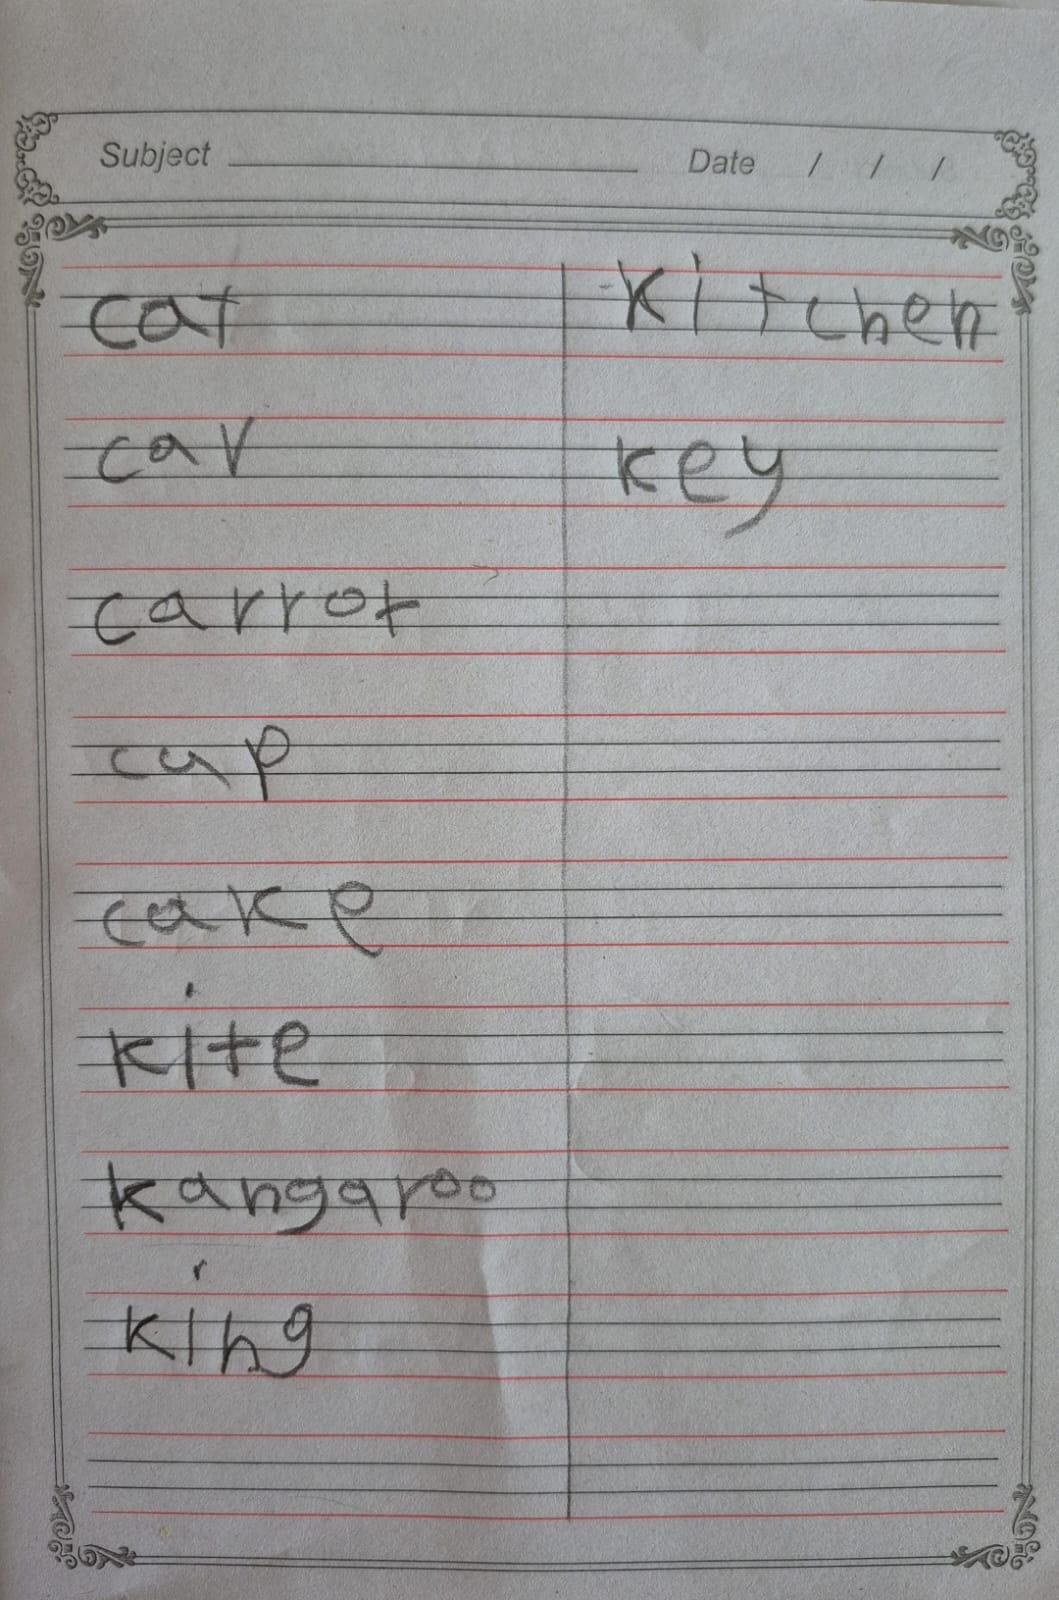 Subject Date / / /
cat
car
carrot
cup
cake
kite
kangaroo
king
kitchen
key